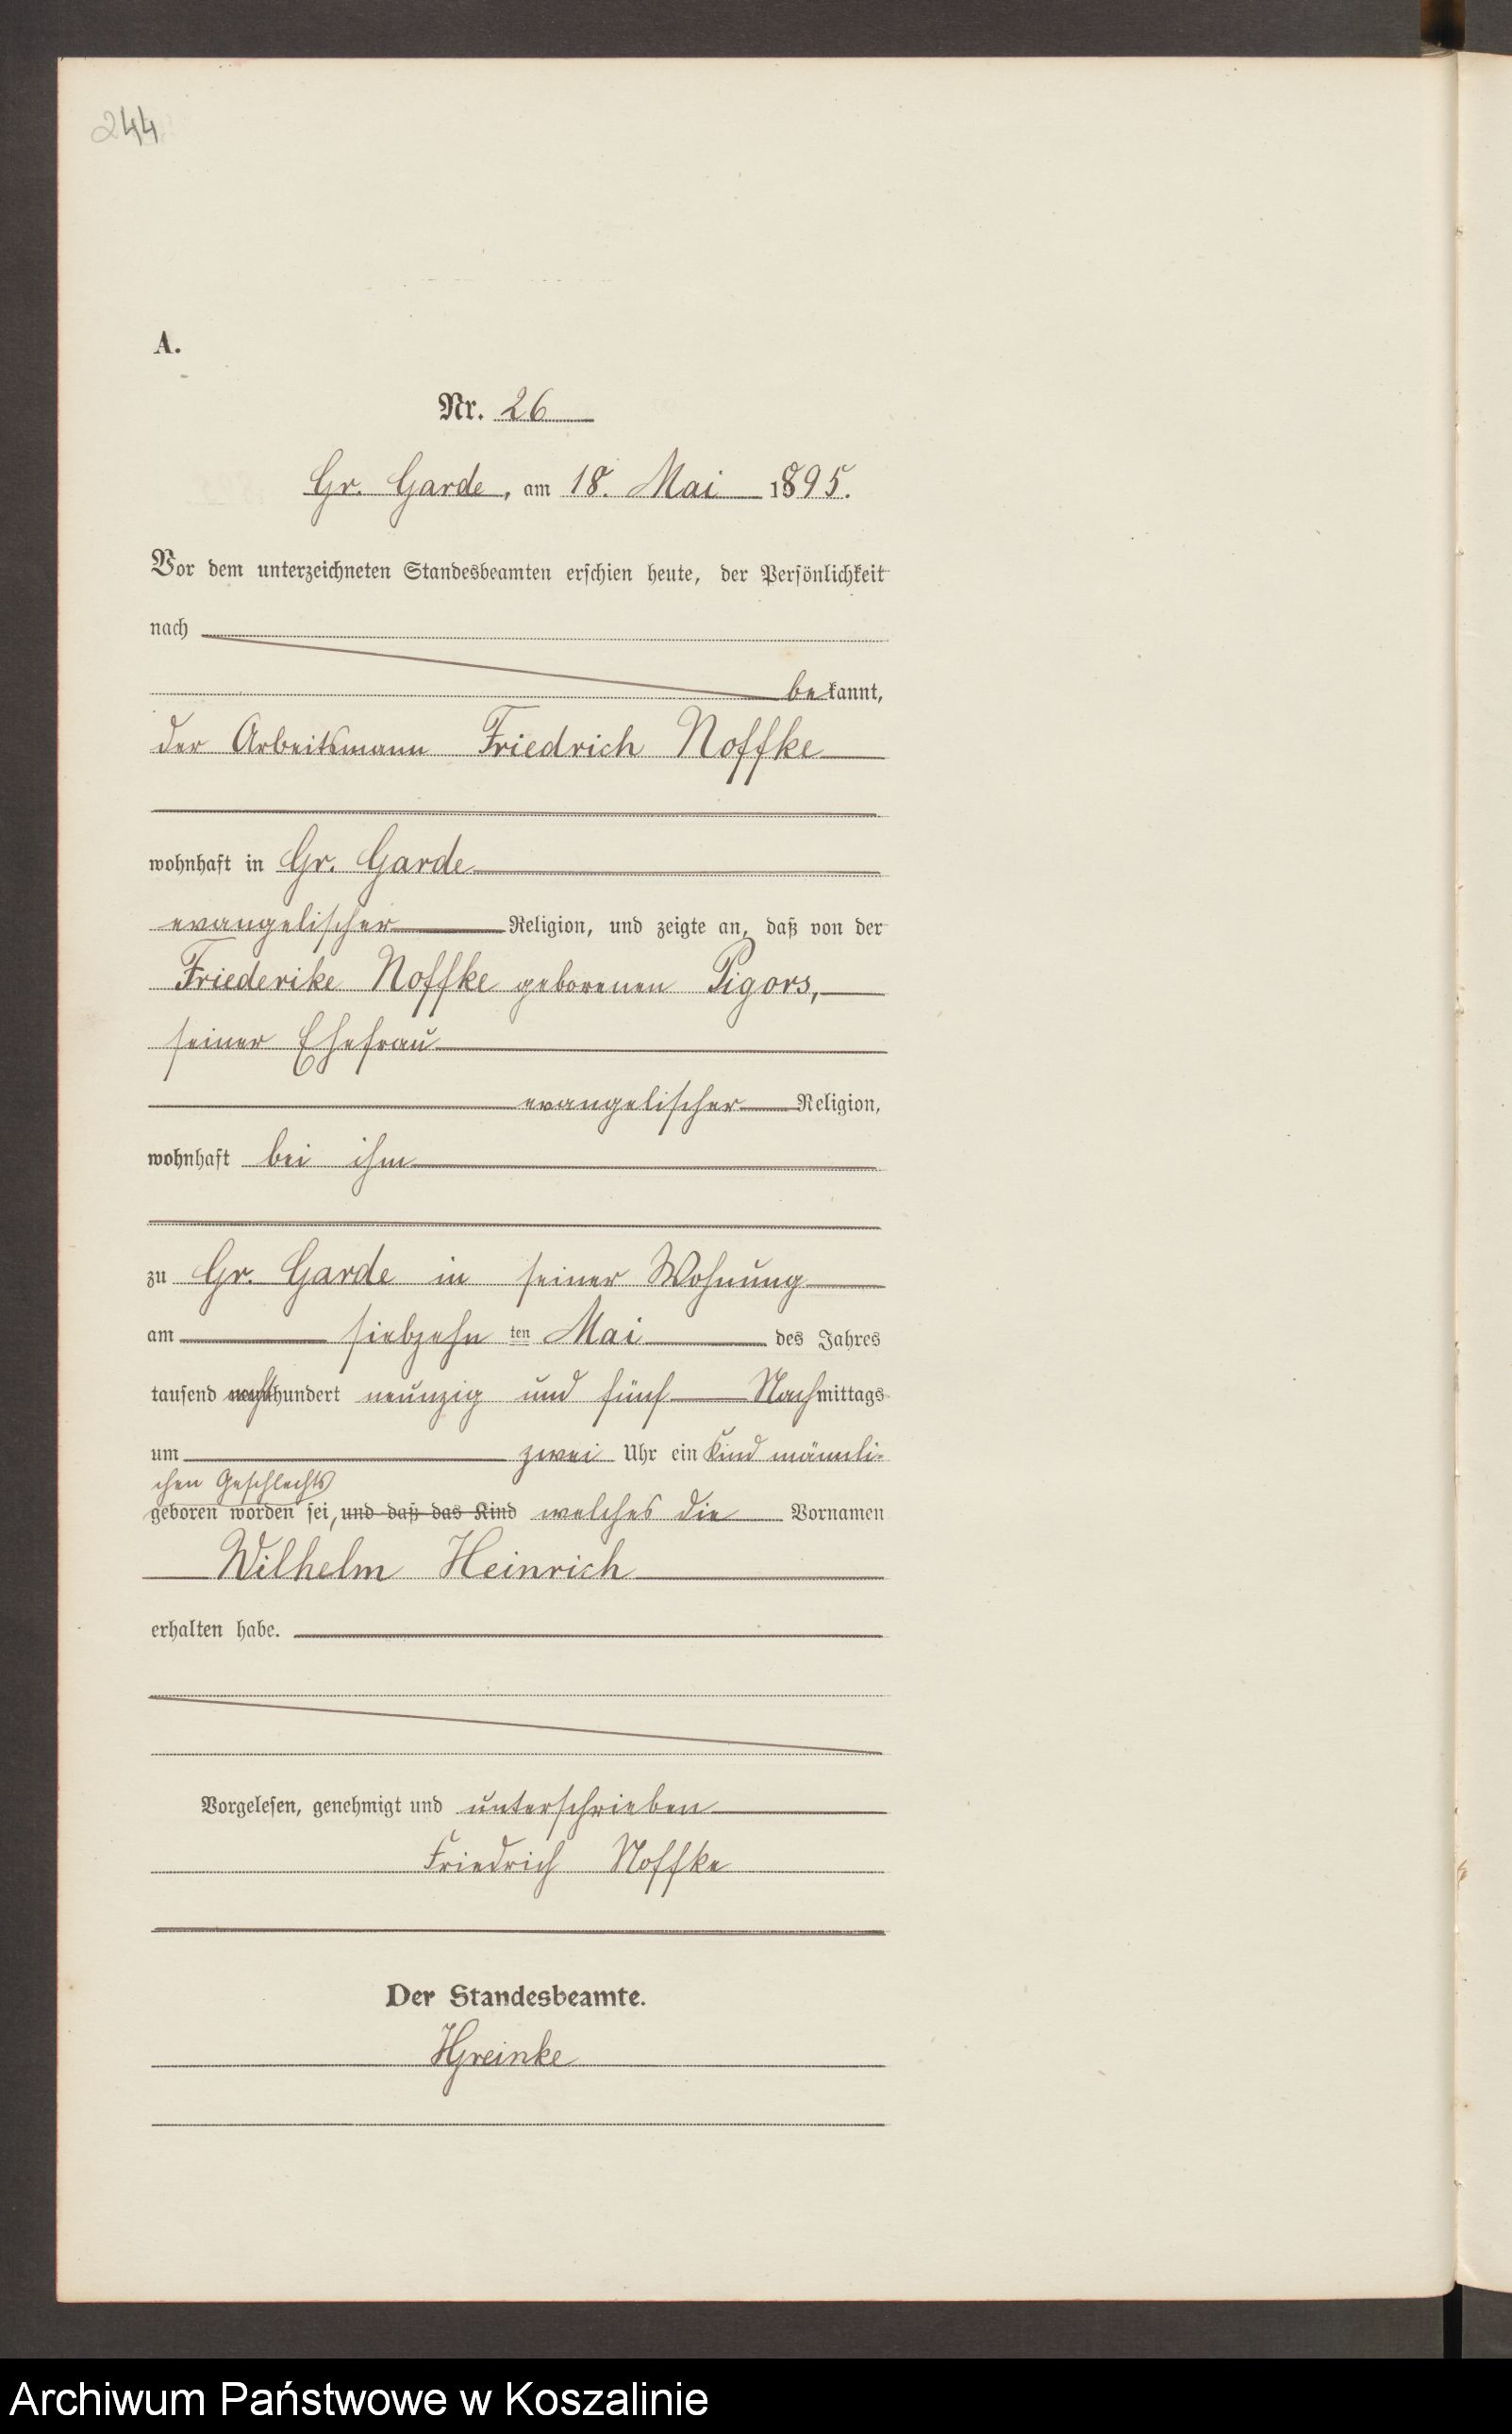 244
A.
Nr. 26
Gr. Garde, am 18. Mai 1895.
Vor dem unterzeichneten Standesbeamten erschien heute, der Persönlichkeit
nach
bekannt,
der Arbeitsmann Friedrich Noffke
wohnhaft in Gr. Garde
evangelischer Religion, und zeigte an, daß von der
Friederike Noffke geborenen Pigors,
seiner Ehefrau
evangelischer Religion,
wohnhaft bei ihm
zu Gr. Garde in seiner Wohnung
am siebzehn ten Mai des Jahres
tausend achthundert neunzig und fünf Nachmittags
um zwei Uhr ein Kind männli-
chen Geschlechts
geboren worden sei, und daß das Kind welches die Vornamen
Wilhelm Heinrich
erhalten habe.
Vorgelesen, genehmigt und unterschrieben
Friedrich Noffke
Der Standesbeamte.
Archiwum Państwowe w Koszalinie